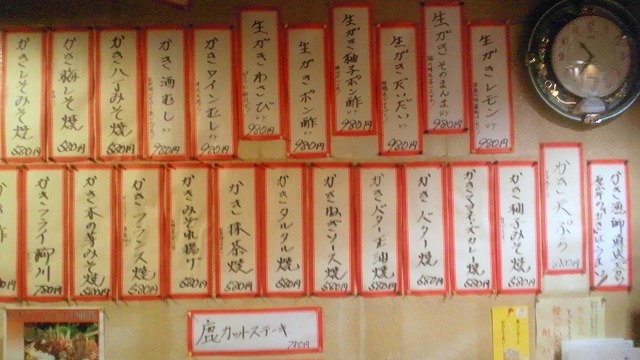 生がきレモン 980円
生がきそのまんま 980円
生がきだいだい 980円
生がき柚子ポン酢 980円
生がきポン酢 980円
生がきわさび 980円
かきワインむし 980円
かき酒むし 980円
かき八丁みそ焼 680円
かき梅しそ焼 680円
かきしそみそ焼 680円
かき天ぷら 680円
かき柚子みそ焼 680円
かきマヨネーズカレー焼 680円
かきバター焼 680円
かきバター正油焼 680円
かきねぎソース焼 680円
かきタルタル焼 680円
かき抹茶焼 680円
かきみそ串揚げ 680円
かきフランス焼 680円
かき木の芽みそ焼 680円
かきフライ柳川 780円
鹿カットステーキ 780円